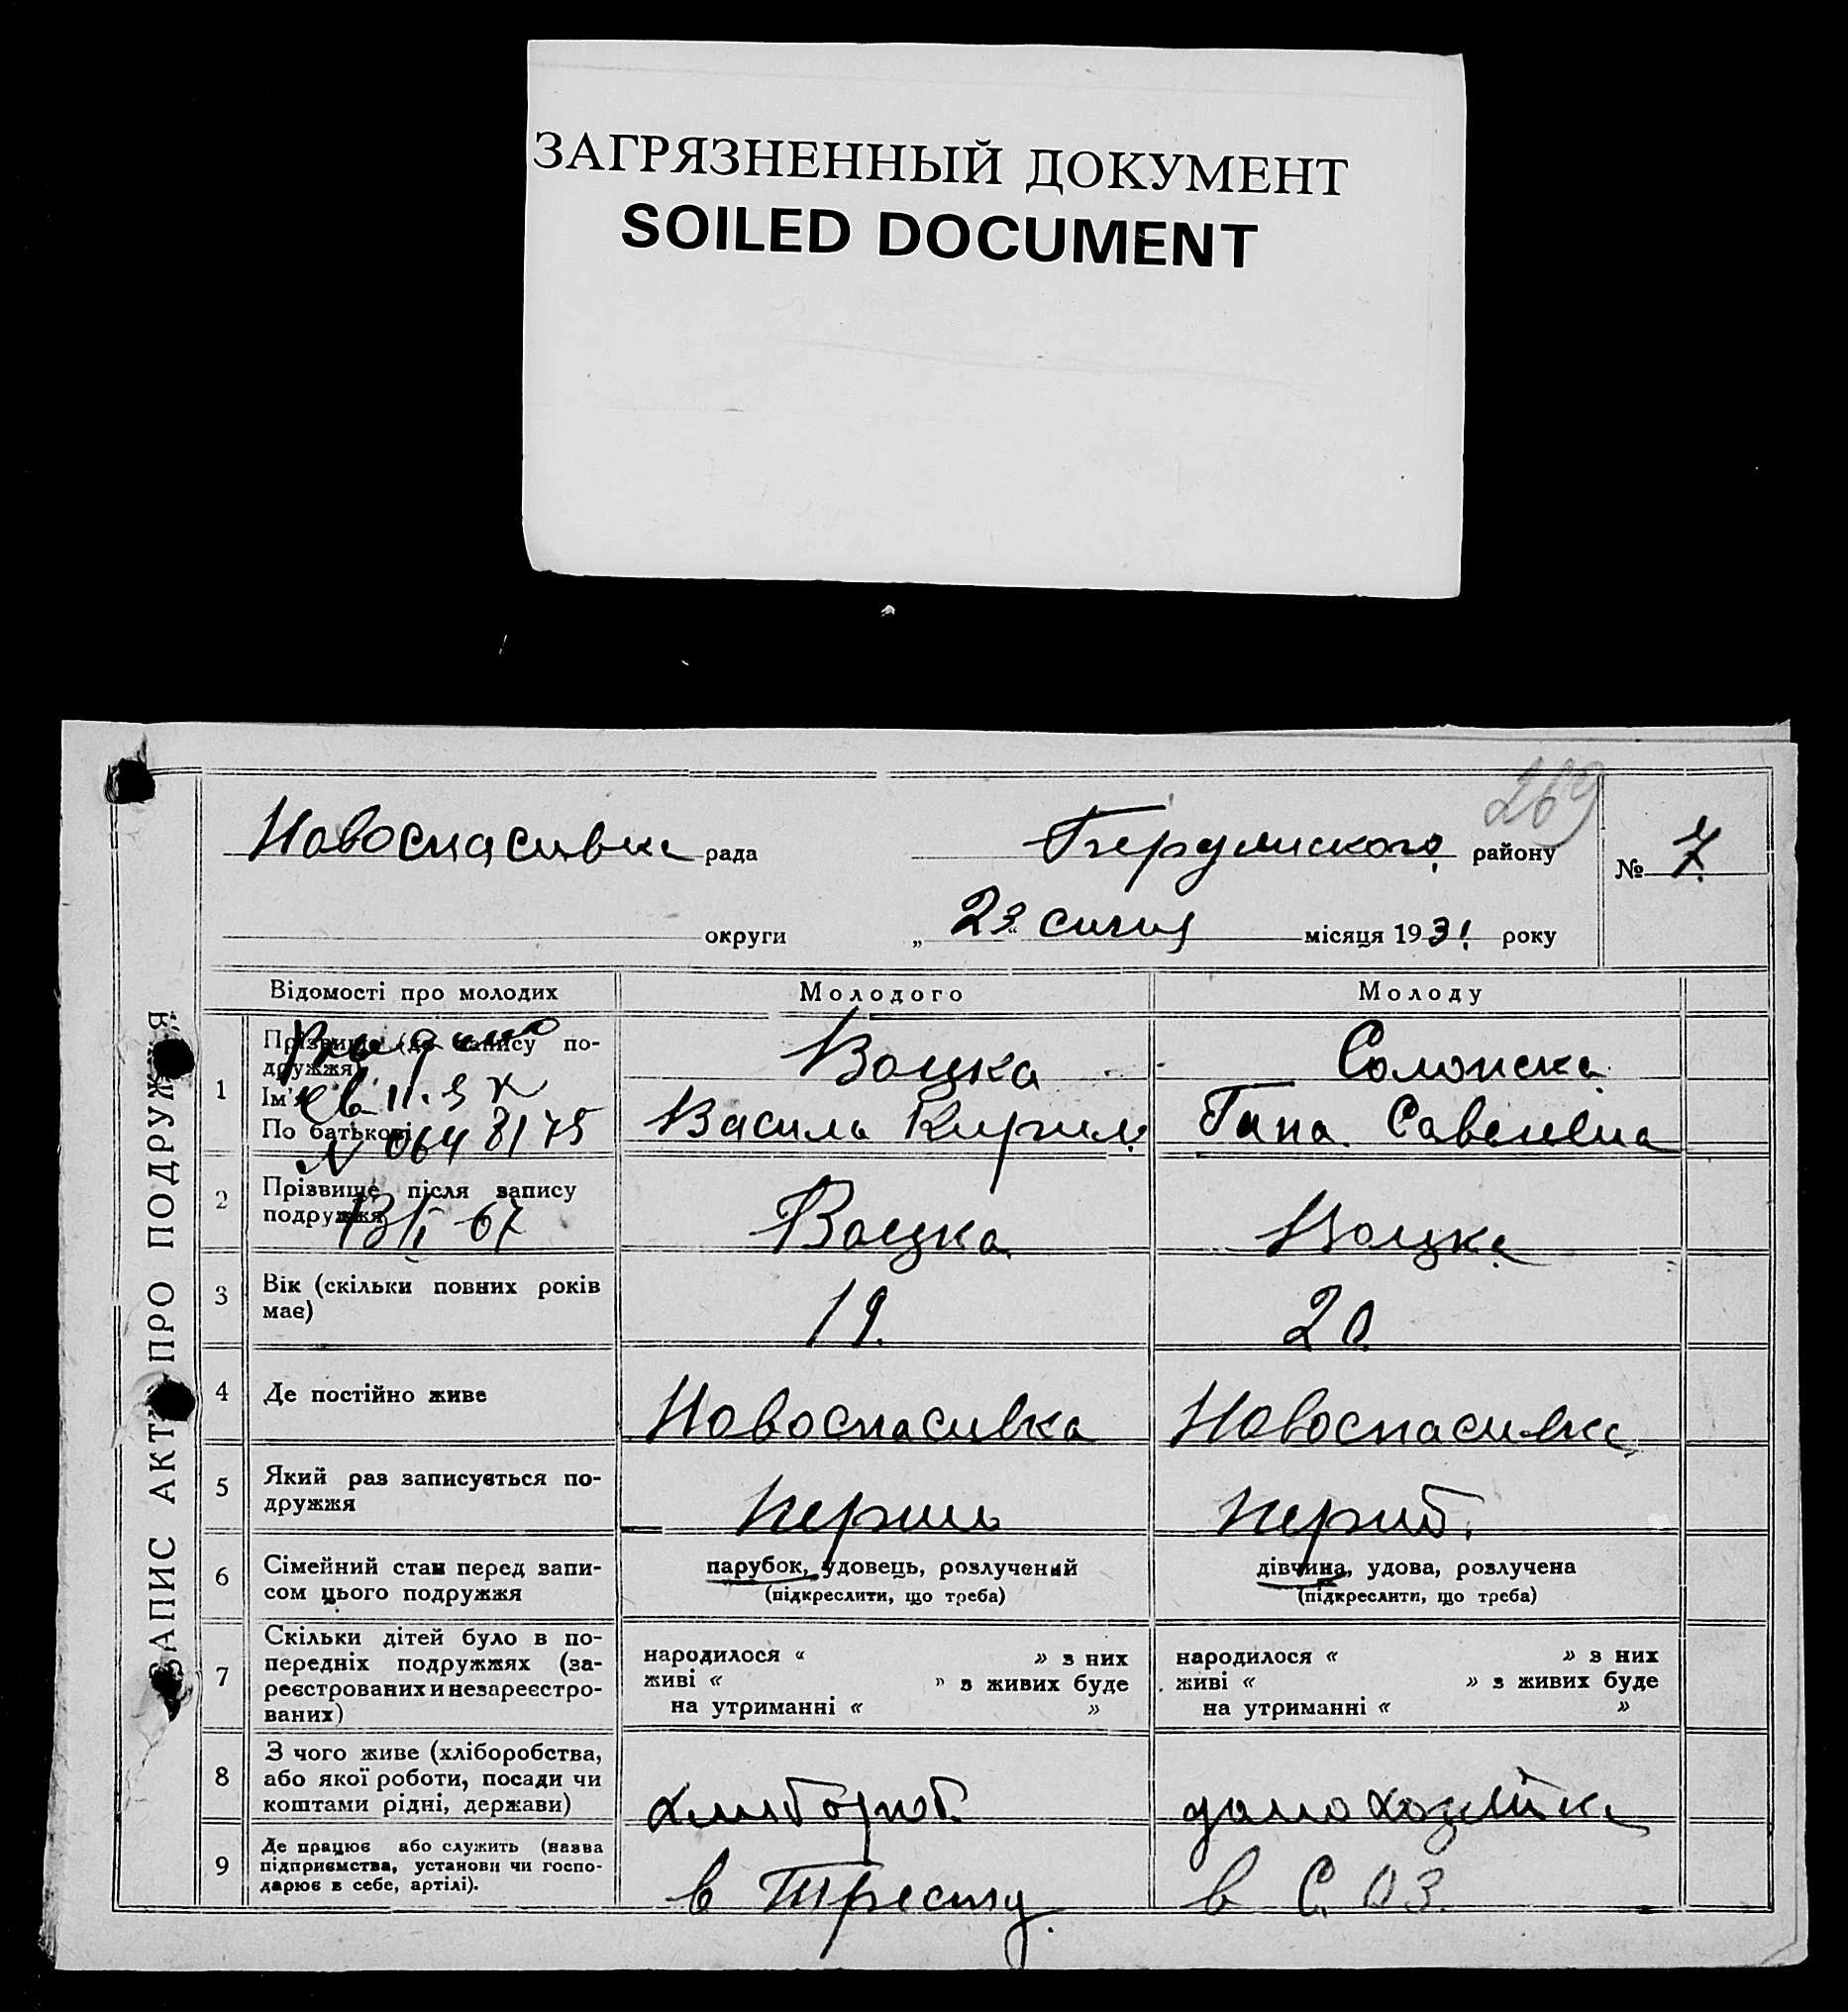 ЗАГРЯЗНЕННЫЙ ДОКУМЕНТ
SOILED DOCUMENT
269
Новоспасивка рада
района району
№ 7.
округи „ 23 “ сичня місяця 1931. року
ЗАПИС АКТУ ПРО ПОДРУЖЖЯ
Відомості про молодих Молодого Молоду
1 Прізвище (до запису подружжя)
Ім'я
По батькові
Воцка Солонска
Василь Кирил. Гана. Савелевна
№ 0648175
13/І-67
2 Прізвище після запису
подружжя
Воцка Воцка
3 Вік (скільки повних років
має)
19. 20.
4 Де постійно живе Новоспасивка Новоспасивка
5 Який раз записується по-
дружжя
перший перший
6 Сімейний стан перед запи-
сом цього подружжя
парубок, удовець, розлучений дівчина, удова, розлучена
(підкреслити, що треба) (підкреслити, що треба)
7 Скільки дітей було в по-
передніх подружжях (за-
реєстрованих и незареєстро-
ваних)
народилося « » з них народилося « » з них
живі « » з живих буде живі « » з живих буде
на утриманні « » на утриманні « »
8 З чого живе (хліборобства,
або якої роботи, посади чи
коштами рідні, держави)
хлибороб. домохозяйка
9 Де працює або служить (назва
підприємства, установи чи госпо-
дарює в себе, артілі).
в Тресту. в С.О.З.